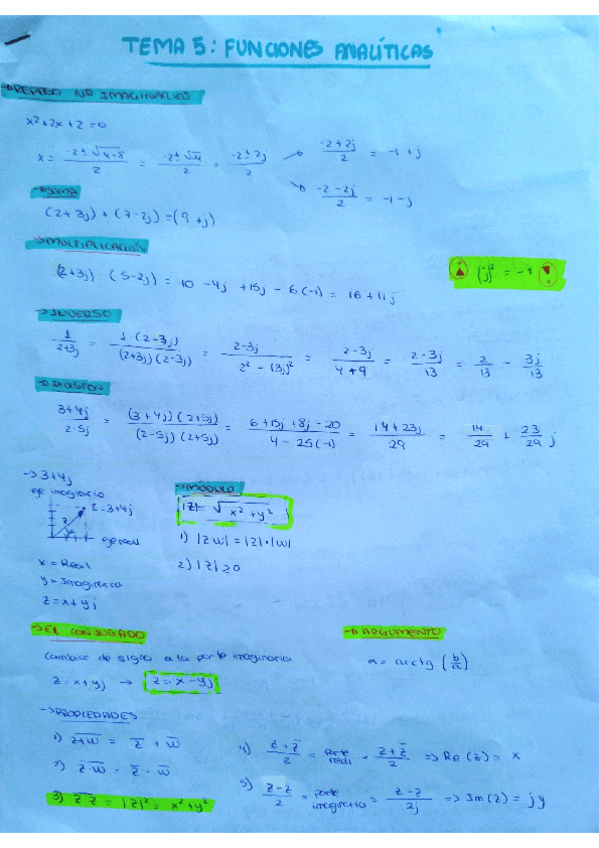 TEMA 5: FUNCIONES ANALÍTICAS
→ REPASO Nº IMAGINARIOS
x²+2x+2=0
x = (-2±√(4-8))/2 = (-2±√-4)/2 = (-2±2j)/2 → (-2+2j)/2 = -1+j
→ (-2-2j)/2 = -1-j
→ SUMA
(2+3j)+(7-2j)=(9+j)
→ MULTIPLICACIÓN
(2+3j) (5-2j) = 10 -4j +15j -6(-1) = 16+11j
(j)² = -1
→ INVERSO
1/(2+3j) = 1·(2-3j)/((2+3j)(2-3j)) = (2-3j)/(2²-(3j)²) = (2-3j)/(4+9) = (2-3j)/13 = 2/13 - 3j/13
→ DIVISIÓN
(3+4j)/(2-5j) = (3+4j)(2+5j)/((2-5j)(2+5j)) = (6+15j+8j-20)/(4-25(-1)) = (14+23j)/29 = 14/29 + 23/29 j
→ 3+4j
eje imaginario
z=3+4j
z
eje real
x = Real
y = Imaginaria
z = x+yj
→ MÓDULO
|z| = √(x²+y²)
1) |zw| = |z|·|w|
2) |z| ≥ 0
→ EL CONJUGADO
Cambiar de signo a la parte imaginaria
z = x+yj → z̄ = x-yj
→ PROPIEDADES
1) z̄+w̄ = z̄ + w̄
2) z̄·w̄ = z̄ · w̄
3) z·z̄ = |z|² = x²+y²
→ ARGUMENTO
α = arctg (b/a)
4) (z+z̄)/2 = parte real = (z+z̄)/2 ⇒ Re(z) = x
5) (z-z̄)/2 = parte imaginaria = (z-z̄)/2j ⇒ Im(z) = jy